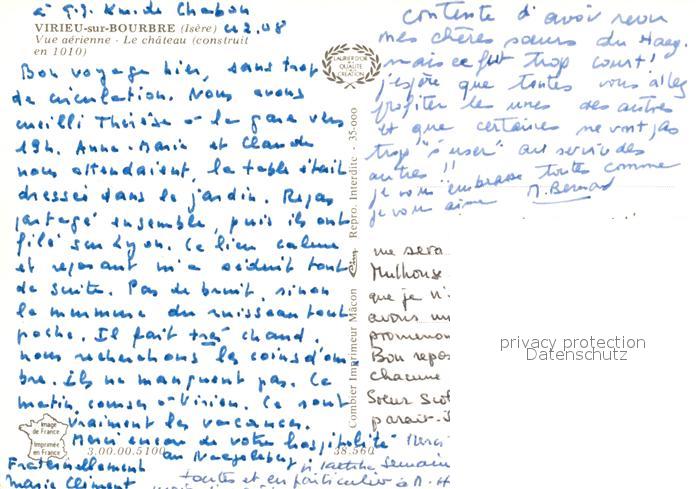 VIRIEU-sur-BOURBRE (Isère)
Vue aérienne - Le château (construit
en 1010)
Bon voyage hier, sans trop
de circulation. Nous avons
cueilli Thérèse à la gare vers
19h. Anne-Marie et Claude
nous attendaient, la table était
dressée dans le jardin. Repas
partagé ensemble, puis ils ont
filé sur Lyon. Ce lieu calme
et reposant m'a séduit tout
de suite. Pas de bruit, sinon
le murmure du ruisseau tout
proche. Il fait très chaud,
nous recherchons les coins d'om-
bre. Ils ne manquent pas. Ce
matin, courses à Virieu. Ce sont
vraiment les vacances.
Merci encore de votre hospitalité
au
Fraternellement
Marie Climent
Image
de France
Imprimée
en France
3.00.00.5100
38.560
LAURIER D'OR
DE LA
QUALITÉ
CRÉATION
Combier Imprimeur Mâcon
Repro. Interdite - 35-000
Contente d'avoir revu
mes chères sœurs du
mais ce fut trop court!
j'espère que toutes vous allez
profiter les unes des autres
et que certaines ne vont pas
trop "s'user" au service des
autres !!
je vous embrasse toutes comme
je vous aime M. Bernad
me sera
Mulhouse
que je n'
avons un
promenon
Bon repos
chacune
Soeur
paraît-
Merci
semain
toutes et en particulier à M.
privacy protection
Datenschutz